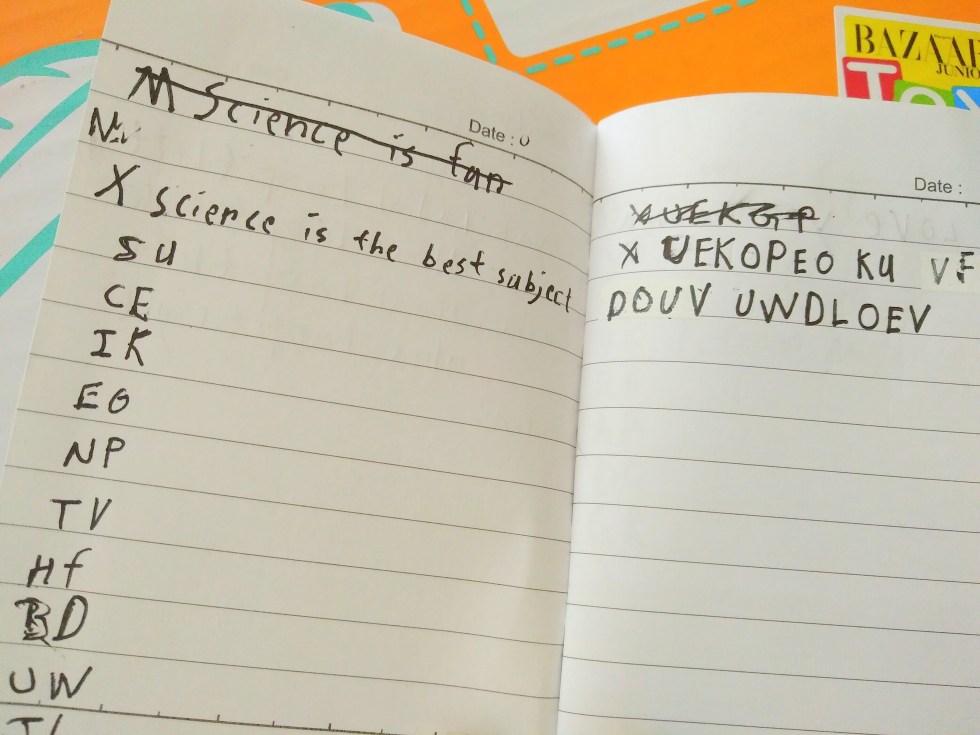 M Science is fun
Date :
X science is the best subject
SU
CE
IK
EO
NP
TV
Hf
BD
UW
BAZAAR
JUNIO
Date :
X UEKOPEO KU VF
DOUV UWDLOEV